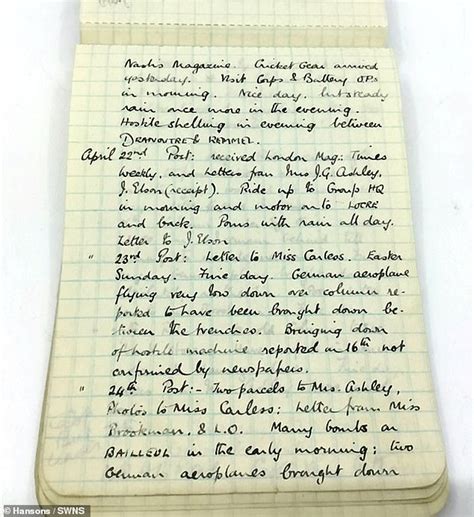 Nash's Magazine. Cricket Gear arrived
yesterday. Visit Corps & Battery OPs
in morning. Nice day, but steady
rain once more in the evening.
Hostile shelling in evening between
DRANOUTRE & KEMMEL.
April 22nd Post: received London Mag: Times
Weekly, and Letters from Mrs J.G. Ashley,
J. Elson (receipt). Ride up to Group HQ
in morning and motor on to LOCRE
and back. Pours with rain all day.
Letter to J. Elson
" 23rd Post: Letter to Miss Carless. Easter
Sunday. Fine day. German aeroplane
flying very low down over column re-
ported to have been brought down be-
tween the trenches. Bringing down
of hostile machine reported on 16th not
confirmed by newspapers.
" 24th Post:- Two parcels to Mrs. Ashley,
Photos to Miss Carless: Letter from Miss
Brookman, & L.O. Many bombs on
BAILLEUL in the early morning; two
German aeroplanes brought down
© Hansons / SWNS